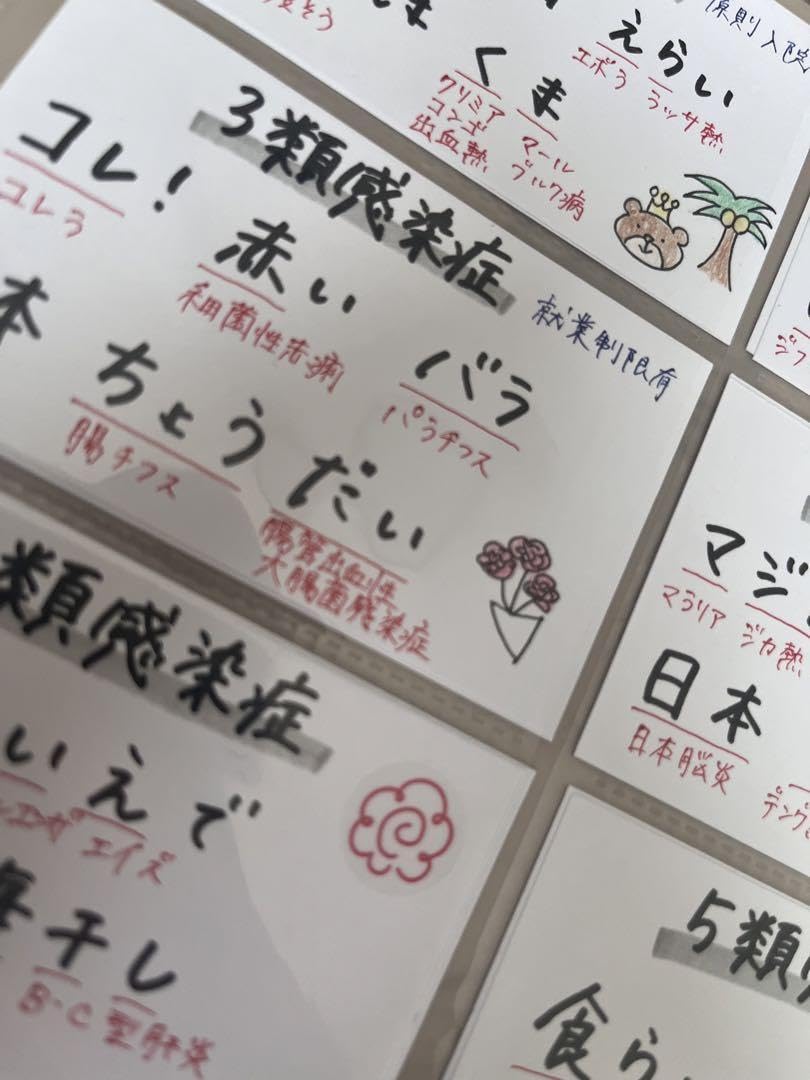 えらい
原則入院
エボラ ラッサ熱
くま
クリミア
コンゴ
出血熱
マール
ブルク病
3類感染症
コレ!
コレラ
赤い
細菌性赤痢
バラ
パラチフス
就業制限有
本
ちょうだい
腸チフス
腸管出血性
大腸菌感染症
類感染症
いえで
エイズ
干し
B・C型肝炎
マジ
マラリア ジカ熱
日本
日本脳炎
デング
5類
食ら